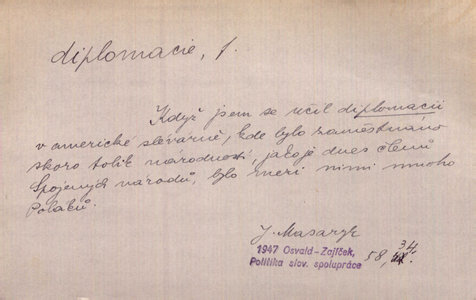 diplomacie, f.
Když jsem se učil diplomacii
v americké slévárně, kde bylo zaměstnáno
skoro tolik národností, jako je dnes členů
Spojených národů, bylo mezi nimi mnoho
Poláků.
J. Masaryk
1947 Osvald-Zajíček,
Politika slov. spolupráce
58, 34.